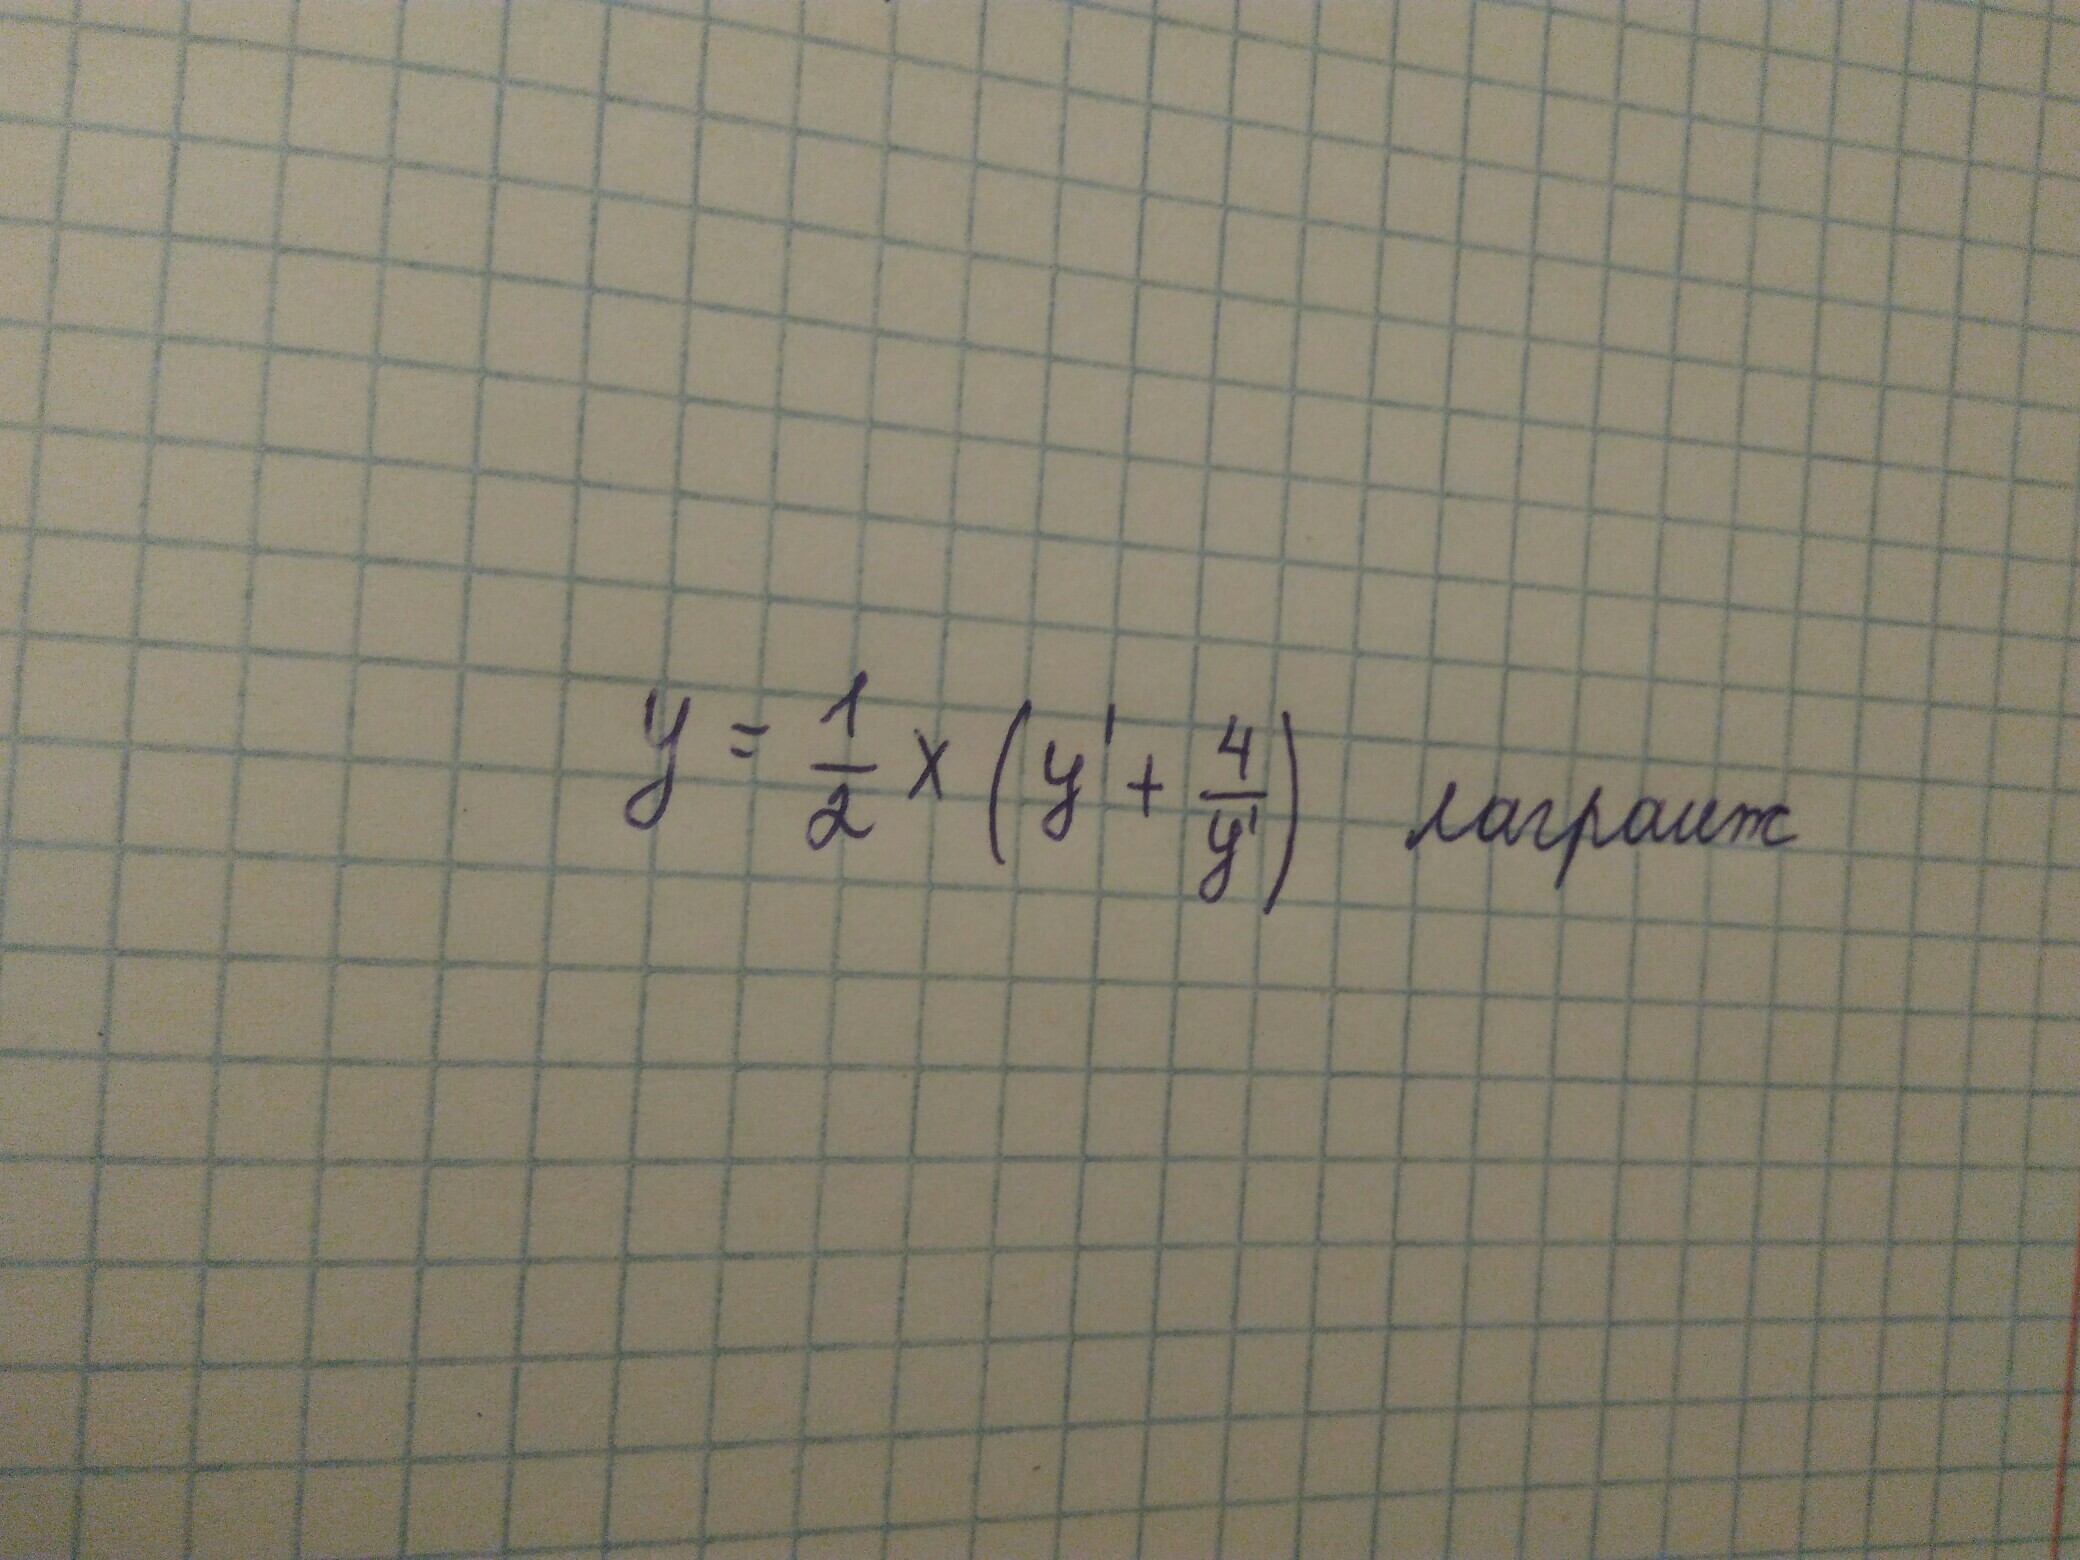 y = \frac{1}{2} x (y' + \frac{4}{y'}) лагранж